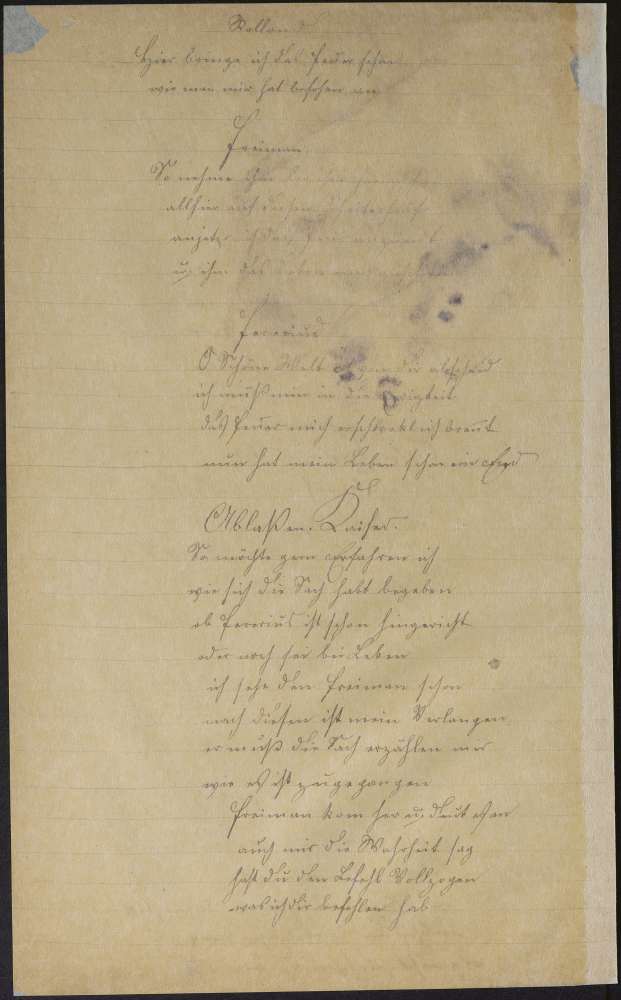 Rolland
Hier bringe ich das Feuer schon
wie man mir hat befohlen an
Freiman.
So nehme ich
allhier auf diesen Scheiterhauf
anjetz ich das Feuer
u. ihm das Leben
Fererius
O Schöne Welt von dir abscheid
ich muß nun in die Ewigkeit
das Feuer mich erschrecklich brent
nun hat mein Leben schon ein End
Ablaßen. Kaiser.
So möchte gern erfahren ich
wie sich die Sach habt begeben
ob Fererius ist schon hingericht
oder noch sei bei Leben
ich sehe den Freiman schon
nach diesen ist mein Verlangen
er muß die Sach erzählen mir
wie es ist zugegangen
Freiman kom her u.
auch mir die Wahrheit sag
hast du den Befehl Vollzogen
was ich dir befohlen hab